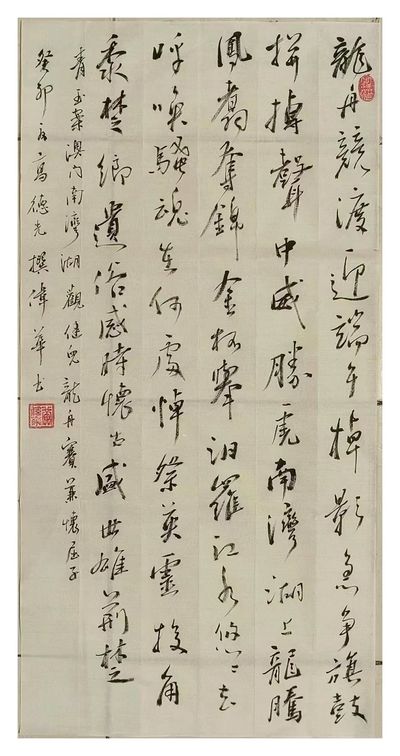 龍舟競渡迎端午棹影急爭旗鼓
拼搏聲中威勝虎南灣湖上龍騰
鳳翥奪錦金杯舉汨羅江水悠〻去
呼喚騷魂在何處悼祭英靈投角
黍楚鄉遺俗感時懷古盛世雄荊楚
青玉案澳门南灣湖觀健兒龍舟賽兼懷屈子
癸卯德光撰偉華书